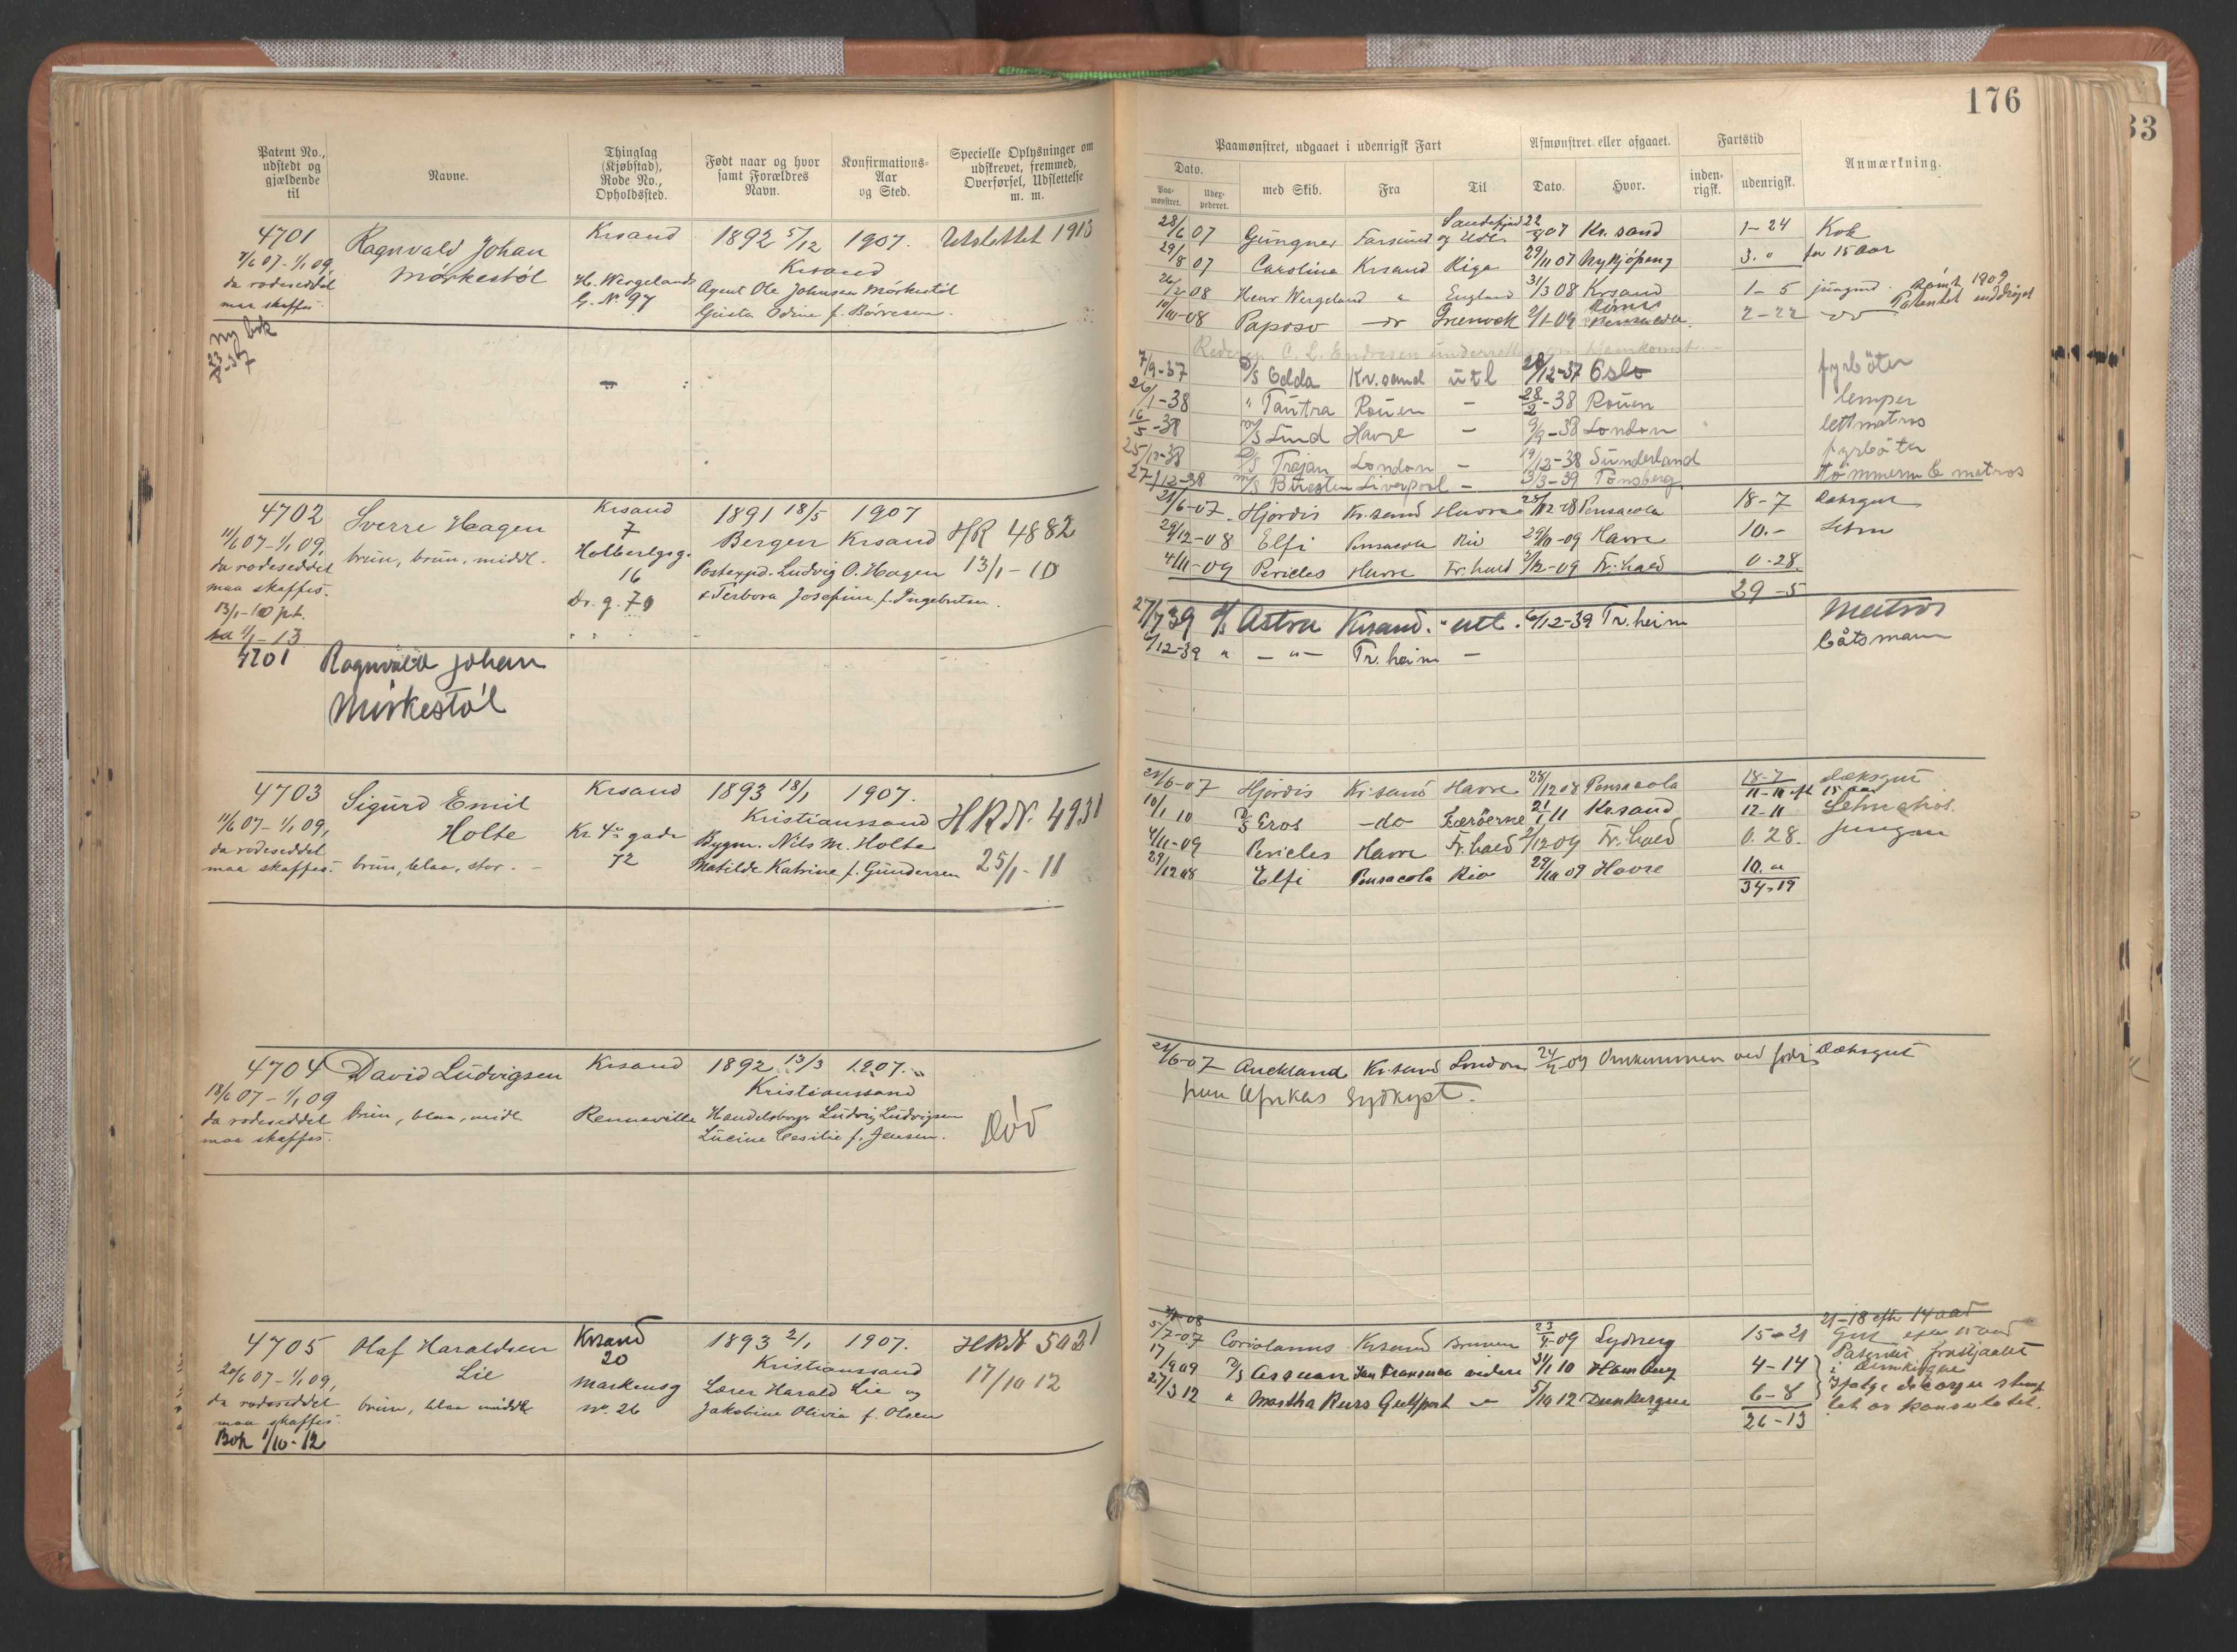 176
33
Patent No., udstedt og gjældende til
Navne.
Thinglag (Kjøbstad), Rode No., Opholdssted.
Født naar og hvor samt Forældres Navn.
Konfirmations-Aar og Sted.
Specielle Oplysninger om udskrevet, fremmed, Overførsel, Udslettelse m. m.
Paamønstret, udgaaet i udenrigsk Fart
Afmønstret eller afgaaet.
Fartstid
Anmærkning.
Dato.
Paa-mønstret.
Udex-pederet.
med Skib.
Fra
Til
Dato.
Hvor.
inden-rigsk.
udenrigsk.
4701 Ragnvald Johan Krsand 1892 5/12 1907. Utslettet 1913
7/6 07-1/1 09, Mørkestøl Krsand
da rodeseddel H. Wergelands Agent Ole Johnsen Mørkestøl
maa skaffes. G. No 97 Gusta Odine f. Børresen.
ny bok
23/8-37
28/6 07 Gungner Farsund Sandefjord og Udl. 22/8 07 Kr.sand 1-24 Kok
29/8 07 Carolina Krsand Riga 29/11 07 Nykjøping 3. " før 15 aar
26/2-08 Henr Wergeland " England 31/3 08 Krsand 1-5 jungmd. Rømt 1909
10/10-08 Paposo -do- Greenock 2/1-09 Rømt 2-22 Patentet inddraget
Rederen C. L. Endresen underrettes om hjemkomst.
7/9-37 D/S Edda Kr.sand utl 28/12-37 Oslo fyrbøter
26/1-38 " Tautra Rouen - 28/2-38 Rouen lemper
16/5-38 M/S Lind Havre - 9/9-38 London lettmatros
25/10-38 D/S Trajan London - 19/12-38 Sunderland fyrbøter
27/12-38 M/S Liverpool - 3/3-39 Tønsberg. tømmerm & matros
4702 Sverre Haagen Krsand 1891 18/5 1907 HR 4882
11/6 07-1/1 09, brun, brun, middl. 7 Bergen Krsand 13/1-10
da rodeseddel Holbertgsg. Postexpd. Ludvig O. Hagen
maa skaffes. 16 & Terbora Josefine f. Ingebretsen.
13/1-10 pt. Dr. g. 70
til 1/1-13
21/6-07 Hjørdis Kr.sand Havre 28/12-08 Pensacola 18-7 Dæksgut
29/12-08 Elfi Pensacola Rio 29/10-09 Havre 10.- Letm
4/11-09 Pericles Havre Fr.hald 2/12-09 Fr.hald 0.28.
29-5
4701 Ragnvald Johan
Mørkestøl
27/7 39 D/S Astra Krsand. utl. 6/12-39 Tr.heim Matros
6/12-39 " -"- Tr.heim - båtsmann
4703 Sigurd Emil Krsand 1893 18/1 1907. HRN. 4931
11/6 07-1/1 09, Holte Kristianssand
da rodeseddel Kr. 4de gade Bygm. Nils M. Holte
maa skaffes. brun, blaa, stor. - 72 Matilde Katrine f. Gundersen 25/1-11
21/6-07 Hjørdis Kr.sand Havre 28/12 08 Pensacola 18-7 Dæksgut
10/1 10 D/S Eros -do Færøerne 21/1 11 Krsand 12-11 Letmatros.
4/11-09 Pericles Havre Fr.hald 2/12 09 Fr.hald 0.28. Jungm
29/12 08 Elfi Pensacola Rio 29/10 09 Havre 10."
34-19
4704 David Ludvigsen Krsand 1892 13/3 1907.
18/6 07-1/1 09 Kristianssand
da rodeseddel brun, blaa, midl. Renneville Handelsborger Ludvig Ludvigsen
maa skaffes. Lucine Cesilie f. Jensen. Død
21/6-07 Auckland Kr.sand London 24/ 09 Omkommen ved forlis Dæksgut
paa Afrikas Sydkyst.
4705 Olaf Haraldsen Krsand 1893 2/1 1907. HRN 5021
20/6 07-1/1 09, Lie 20 Kristianssand 17/10 12
da rodeseddel brun, blaa middl Markensg Lærer Harald Lie og
maa skaffes. No. 26 Jakobine Olivia f. Olsen
Bok 1/10-12
5/7-07 Coriolanus Krsand Bremen 23/4-09 Sydney 15-21
17/9 09 D/S San Fransisco videre 31/1 10 Hamburg 4-14
27/3 12 " Martha Russ Gulfport 5/10 12 Dunkerque 6-8
26-13
21-18 eft 14 aar
Gut efter 15 aar
Patentet frastjaalet
i Dunkirque
Ifølge
let av konsulatet.